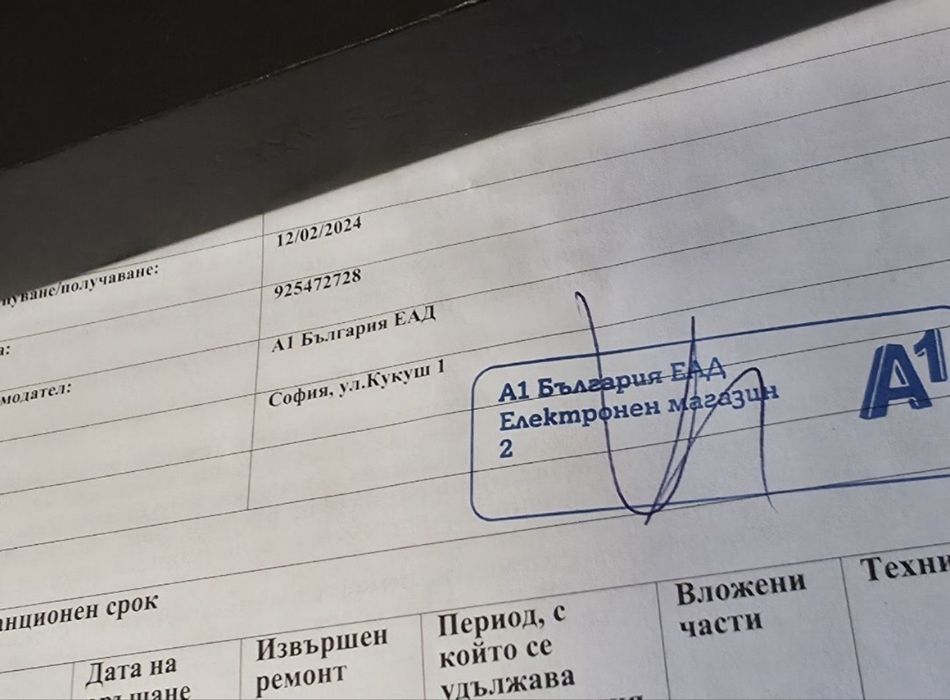 12/02/2024
пуване/получаване:
925472728
а:
А1 България ЕАД
модател:
София, ул.Кукуш 1
А1 България ЕАД
Електронен магазин
2
A1
анционен срок
Дата на
връщане
Извършен
ремонт
Период, с
който се
удължава
Вложени
части
Техни